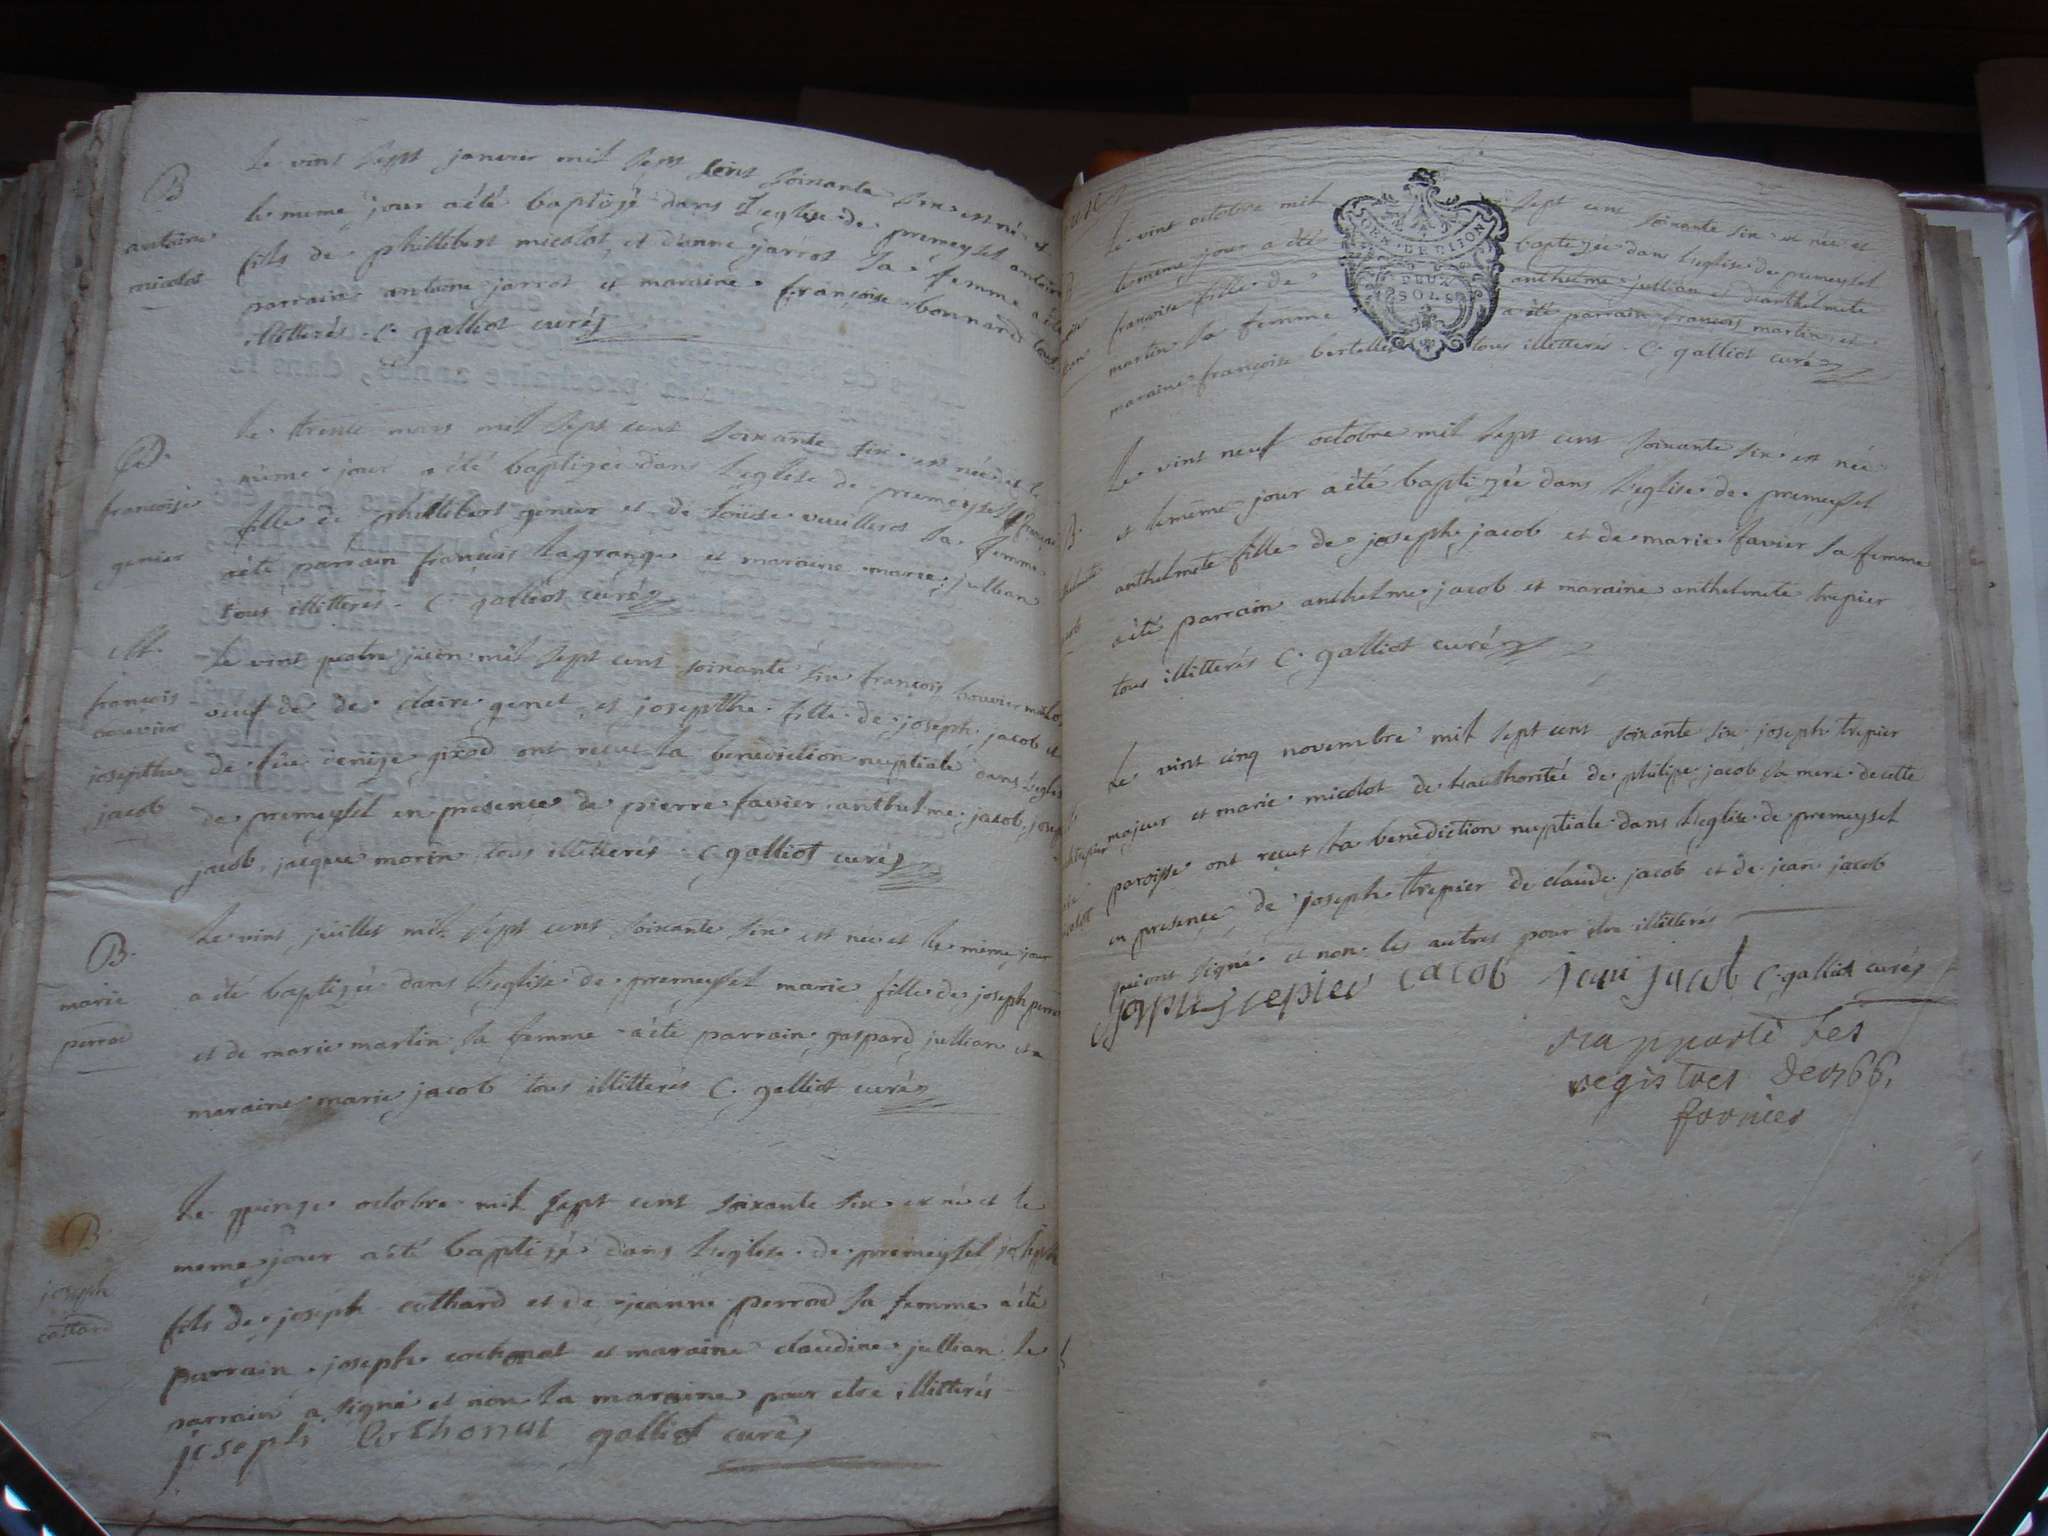 Le vint sept janvier mil sept cens soixante six est né et
B
antoine
micolot
le meme jour a été baptizé dans l'eglise de premeysel antoine
fils de philllibert micolot et d'anne jarrot sa femme a été
parrain antoine jarrot et maraine françoise bonnard tous
illitterés C. galliot curé
Le trente mars mil sept cent soixante six est née et le
B.
françoise
genier
même jour a été baptizée dans l'eglise de premeysel françoise
fille de phillibert genier et de loüise vuilleros sa femme
a été parrain francois lagrange et maraine marie jullian
tous illitterés - C. galliot curé
M.
françois
bouvier
josepthe
jacob
Le vint quatre juin mil sept cent soixante six françois bouvier
veuf de de claire genet et josepthe fille de joseph jacob et
de füe denize grod ont reçut la benediction nuptiale dans l'eglise
de premeysel en presence de pierre favier, anthelme jacob, joseph
jacob, jacque morin tous illitterés C. galliot curé
B.
marie
perrod
Le vint juillet mil sept cent soixante six est née et le même jour
a été baptizée dans l'eglise de premeysel marie fille de joseph perrod
et de marie martin sa femme a été parrain gaspard jullian et
maraine marie jacob tous illitterés C. galliot curé
B.
joseph
cottard
Le quinze octobre mil sept cent soixante six est né et le
meme jour a été baptizé dans l'eglise de premeysel joseph
fils de joseph cothard et de jeanne perrod sa femme a été
parrain joseph cochonat et maraine claudine jullian le
parrain a signé et non la maraine pour etre illitterés
joseph Cochonat galliot curé
GEN. DE DIJON
DEUX
SOLS
Le vint octobre mil sept cent soixante six est née et
le même jour a été baptizée dans l'eglise de premeysel
françoise fille de anthelme jullian et d'anthelmete
martin sa femme a été parrain francois martin et
maraine françoise bertellet tous illitteres - C. galliot curé
Le vint neuf octobre mil sept cent soixante six est née
B.
et le même jour a été baptizée dans l'eglise de premeysel
anthelmete fille de joseph jacob et de marie favier sa femme
a été parrain anthelme jacob et maraine anthelmete trepier
tous illitterés C. galliot curé
Le vint cinq novembre mil sept cent soixante six joseph trepier
majeur et marie micolot de l'authoritée de philipe jacob sa mere de cette
paroisse ont reçut la benediction nuptiale dans l'eglise de premeysel
en presence de joseph trepier de claude jacob et de jean jacob
qui ont signé et non les autres pour etre illitterés
joseph trepier cacob jean jacob C. galliot curé
rapporté les
registres de 1766,
fornier